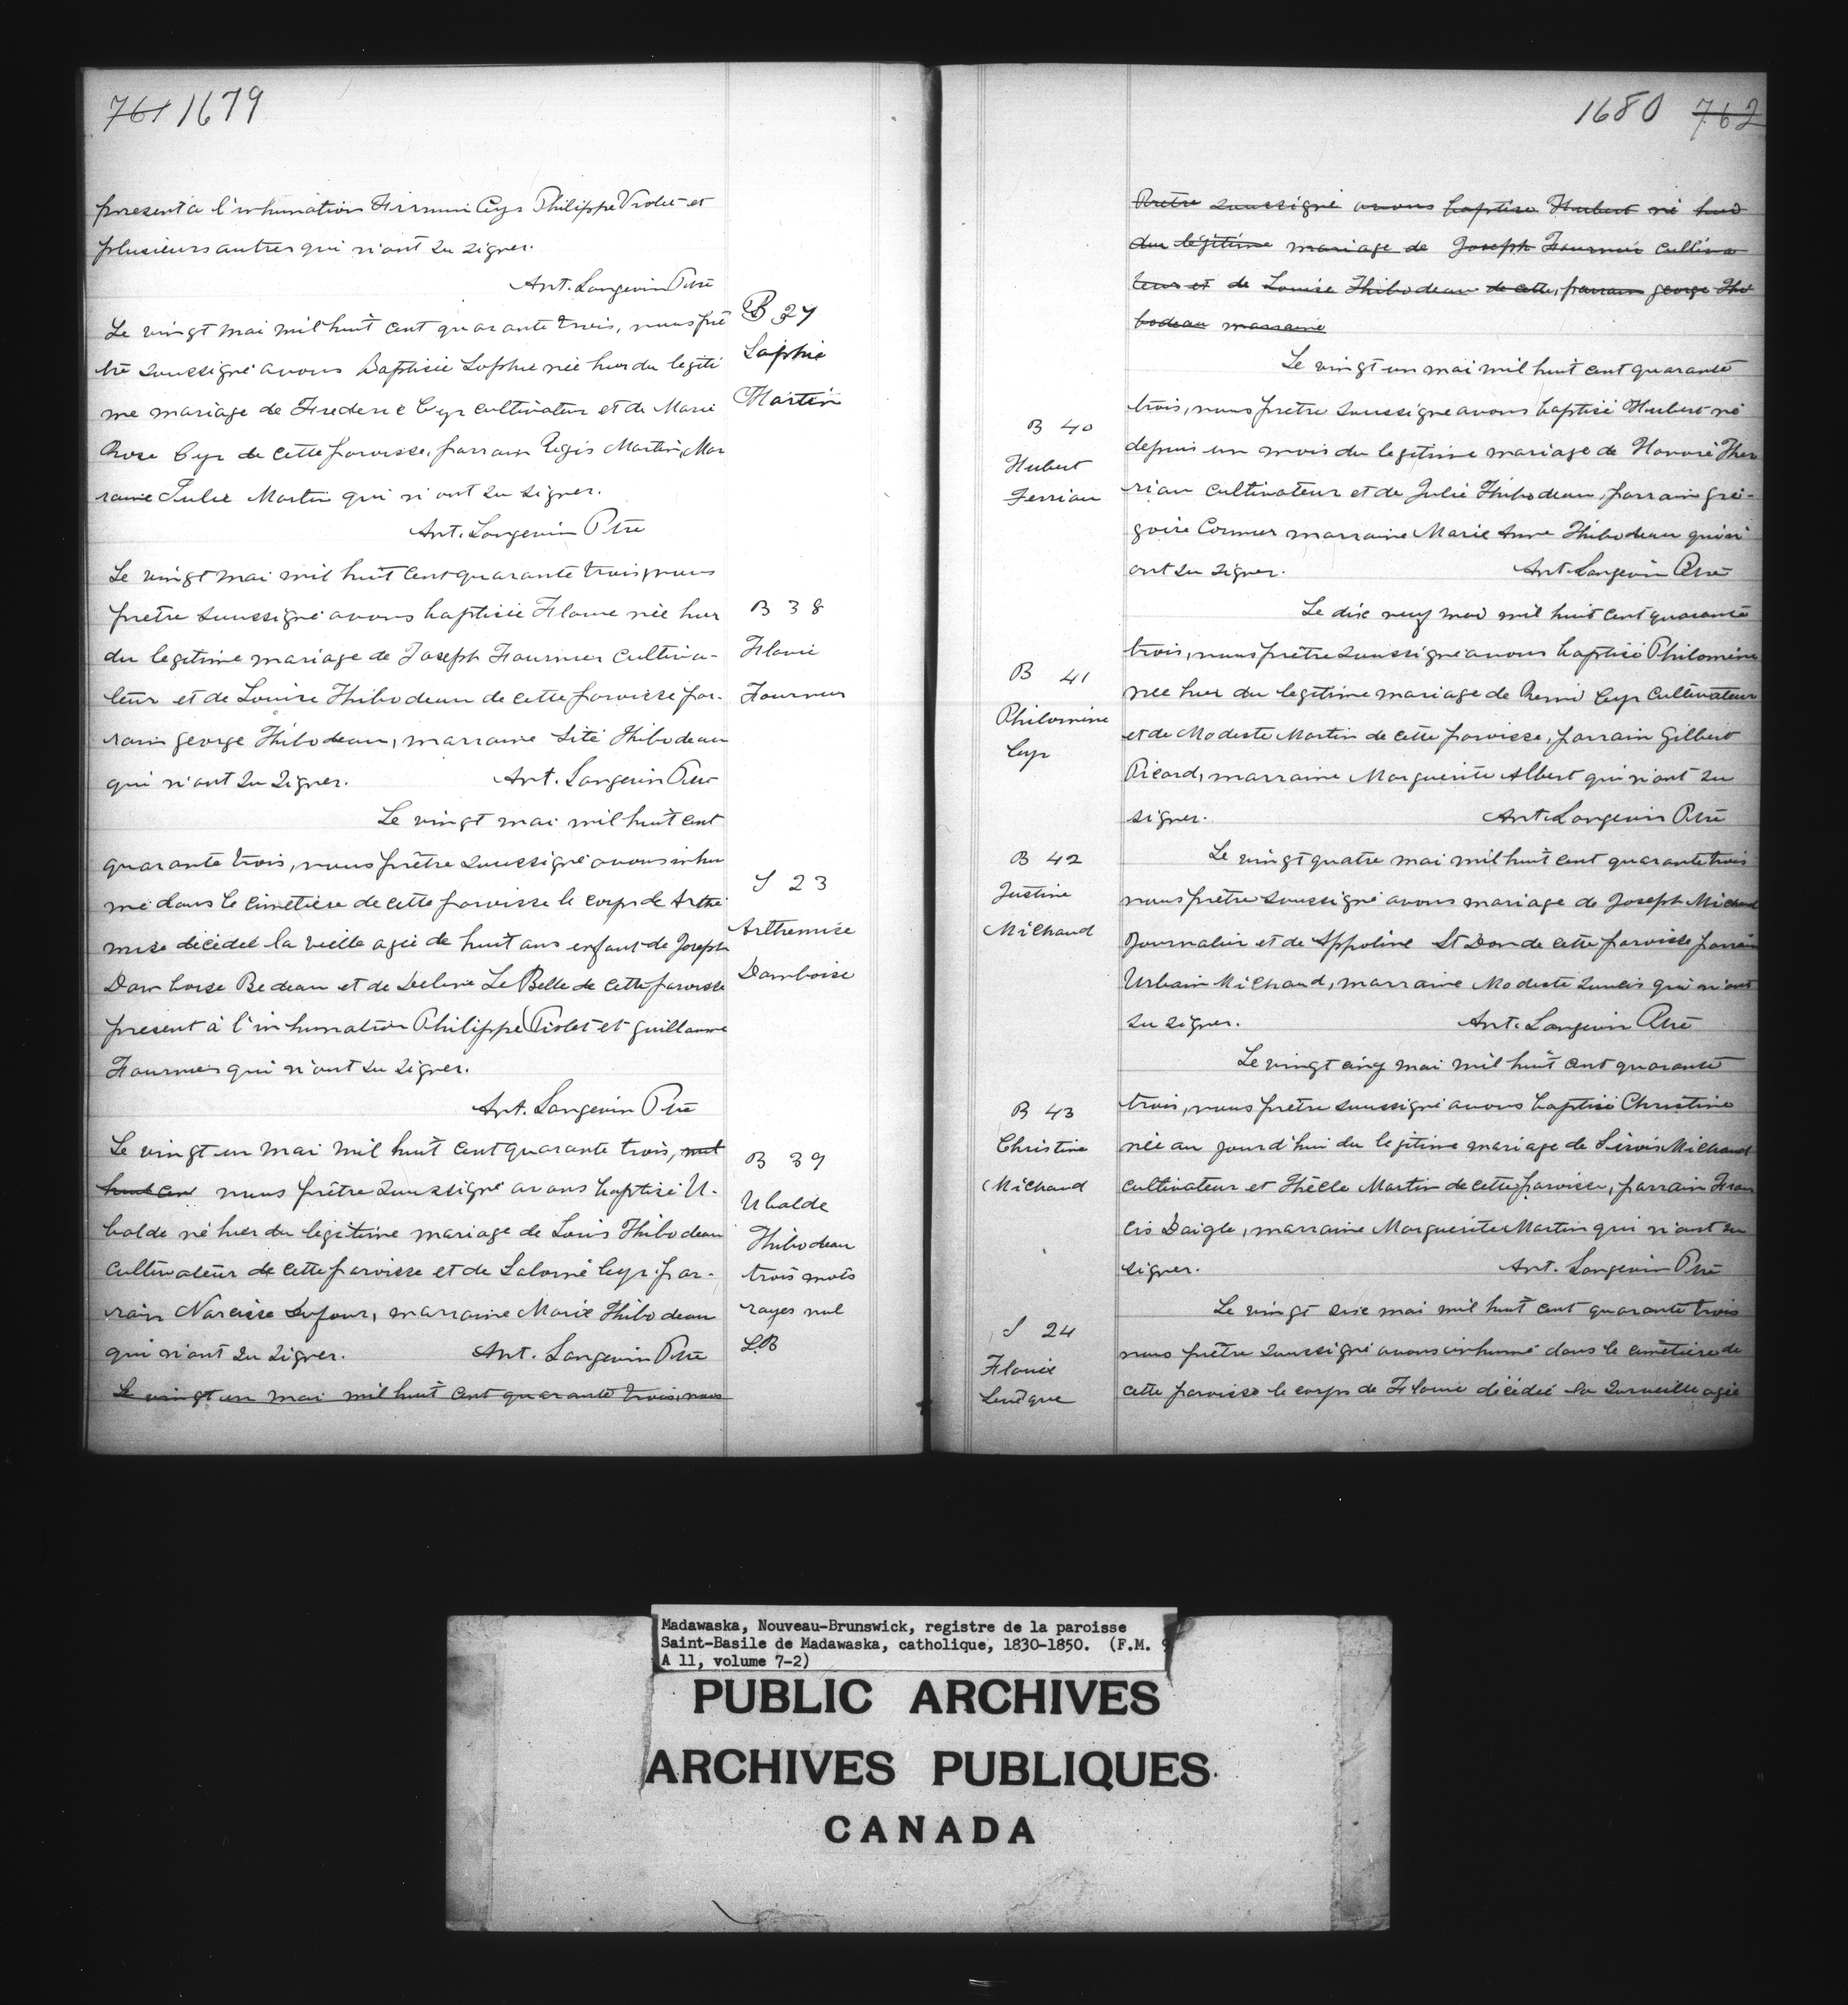 761 1679
present a l'inhumation Firmin Cyr Philippe Violet et
plusieurs autres qui n'ont su signer.
Ant. Langevin Ptre
B 37
Sophie
Martin
Le vingt mai mil huit cent quarante trois, nous prê
tre soussigné avons Baptisée Sophie née hier du legiti
me mariage de Frederic Cyr cultivateur et de Marie
Rose Cyr de cette paroisse, parrain Régis Martin, Mar
raine Julie Martin qui n'ont su signer.
Ant. Langevin Ptre
B 38
Flavie
Fournier
Le vingt mai mil huit cent quarante trois, nous
prêtre soussigné avons baptisée Flavie née hier
du legitime mariage de Joseph Fournier Cultiva-
teur et de Louise Thibodeau de cette paroisse par-
rain george Thibodeau, marraine Sité Thibodeau
qui n'ont su signer. Ant. Langevin Ptre
S 23
Arthemise
Damboise
Le vingt mai mil huit cent
quarante trois, nous prêtre soussigné avons inhu
mé dans le cimetière de cette paroisse le corps de Arthé
mise décédée la veille agée de huit ans enfant de Joseph
Damboise Bedeau et de Le Belle de cette paroisse
present à l'inhumation Philippe Violet et guillaume
Fournier qui n'ont su signer.
Ant. Langevin Ptre
B 39
Ubalde
Thibodeau
trois mots
rayes nul
L.B
Le vingt un mai mil huit cent quarante trois, mil
huit cent nous prêtre soussigné avons baptisé U-
balde né hier du legitime mariage de Louis Thibodeau
Cultivateur de cette paroisse et de Salomé Cyr. par-
rain Narcisse Dufour, marraine Marie Thibodeau
qui n'ont su signer. Ant. Langevin Ptre
Le vingt un mai mil huit cent quarante trois, nous
1680 762
Prêtre soussigné avons baptisé Hubert né hier
du légitime mariage de Joseph Fournier cultiva
teur et de Louise Thibodeau de cette, parrain george Thi
bodeau marraine
B 40
Hubert
Terriau
Le vingt un mai mil huit cent quarante
trois, nous prêtre soussigné avons baptisé Hubert né
depuis un mois du legitime mariage de Honoré Ther
riau cultivateur et de Julie Thibodeau, parrain gré-
goire Cormier marraine Marie Anne Thibodeau qui n'
ont su signer. Ant. Langevin Ptre
B 41
Philomène
Cyr
Le dix neuf mai mil huit cent quarante
trois, nous prêtre soussigné avons baptisé Philomène
née hier du legitime mariage de Remi Cyr Cultivateur
et de Modeste Martin de cette paroisse, parrain Gilbert
Picard, marraine Marguerite Albert qui n'ont su
signer. Ant. Langevin Ptre
B 42
Justine
Michaud
Le vingt quatre mai mil huit cent quarante trois
nous prêtre soussigné avons mariage de Joseph Michaud
Journalier et de Appoline St Don de cette paroisse parrain
Urbain Michaud, marraine Modeste qui n'ont
su signer. Ant. Langevin Ptre
B 43
Christine
Michaud
Le vingt cinq mai mil huit cent quarante
trois, nous prêtre soussigné avons baptisé Christine
née au jourd'hui du legitime mariage de Michaud
cultivateur et Thècle Martin de cette paroisse, parrain Fran
cis Daigle, marraine Marguerite Martin qui n'ont su
signer. Ant. Langevin Ptre
S 24
Flavie
Levèque
Le vingt six mai mil huit cent quarante trois
nous prêtre soussigné avons inhumé dans le cimetière de
cette paroisse le corps de Flavie décédée la surveille agée
Madawaska, Nouveau-Brunswick, registre de la paroisse
Saint-Basile de Madawaska, catholique, 1830-1850. (F.M. 9
A 11, volume 7-2)
PUBLIC ARCHIVES
ARCHIVES PUBLIQUES
CANADA